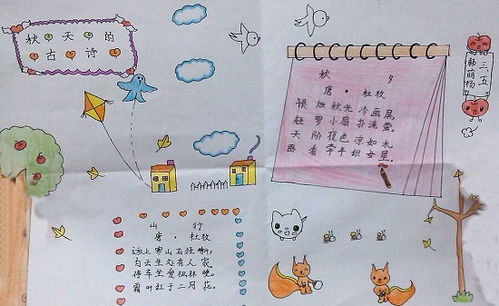 秋天的
古诗
秋 夕
唐·杜牧
银烛秋光冷画屏,
轻罗小扇扑流萤。
天阶夜色凉如水,
卧看牵牛织女星。
三.五
山 行
唐·杜牧
远上寒山石径斜,
白云生处有人家。
停车坐爱枫林晚,
霜叶红于二月花。